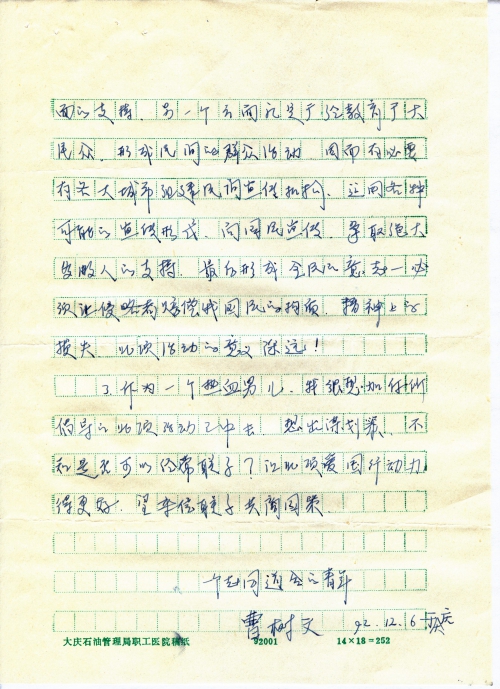 面的支持。另一个方面就是广泛教育了大
民众。形成民间的群众活动。因而有必要
在各大城市组建民间宣传机构。运用各种
可能的宣传形式。向国民宣传。争取绝大
多数人的支持。最后形成全民的意志—必
须让侵略者赔偿我国民的物质、精神上的
损失。此项活动的意义深远！
3.作为一个热血男儿。我很想加入你们
倡导的此项活动之中去。想出谋划策。不
知是否可以经常联系？让此项爱国行动办
得更好。望来信联系共商国策。
一个志同道合的青年
曹树文 92.12.6 于大庆
大庆石油管理局职工医院稿纸 92001 14×18=252